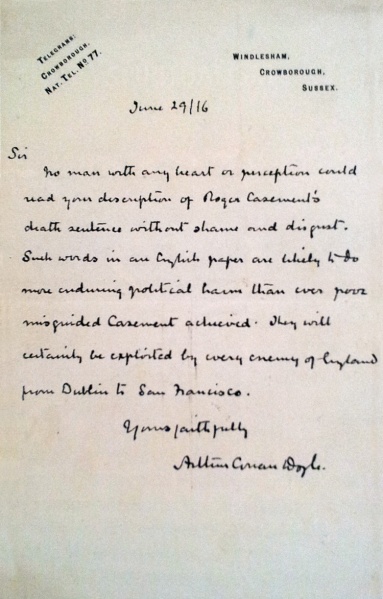 TELEGRAMS:
CROWBOROUGH.
NAT. TEL. NO 77.
WINDLESHAM,
CROWBOROUGH,
SUSSEX.
June 29/16
Sir
No man with any heart or perception could
read your description of Roger Casement's
death sentence without shame and disgust.
Such words in an English paper are likely to do
more enduring political harm than ever poor
misguided Casement achieved. They will
certainly be exploited by every enemy of England
from Dublin to San Francisco.
Yours faithfully
Arthur Conan Doyle.